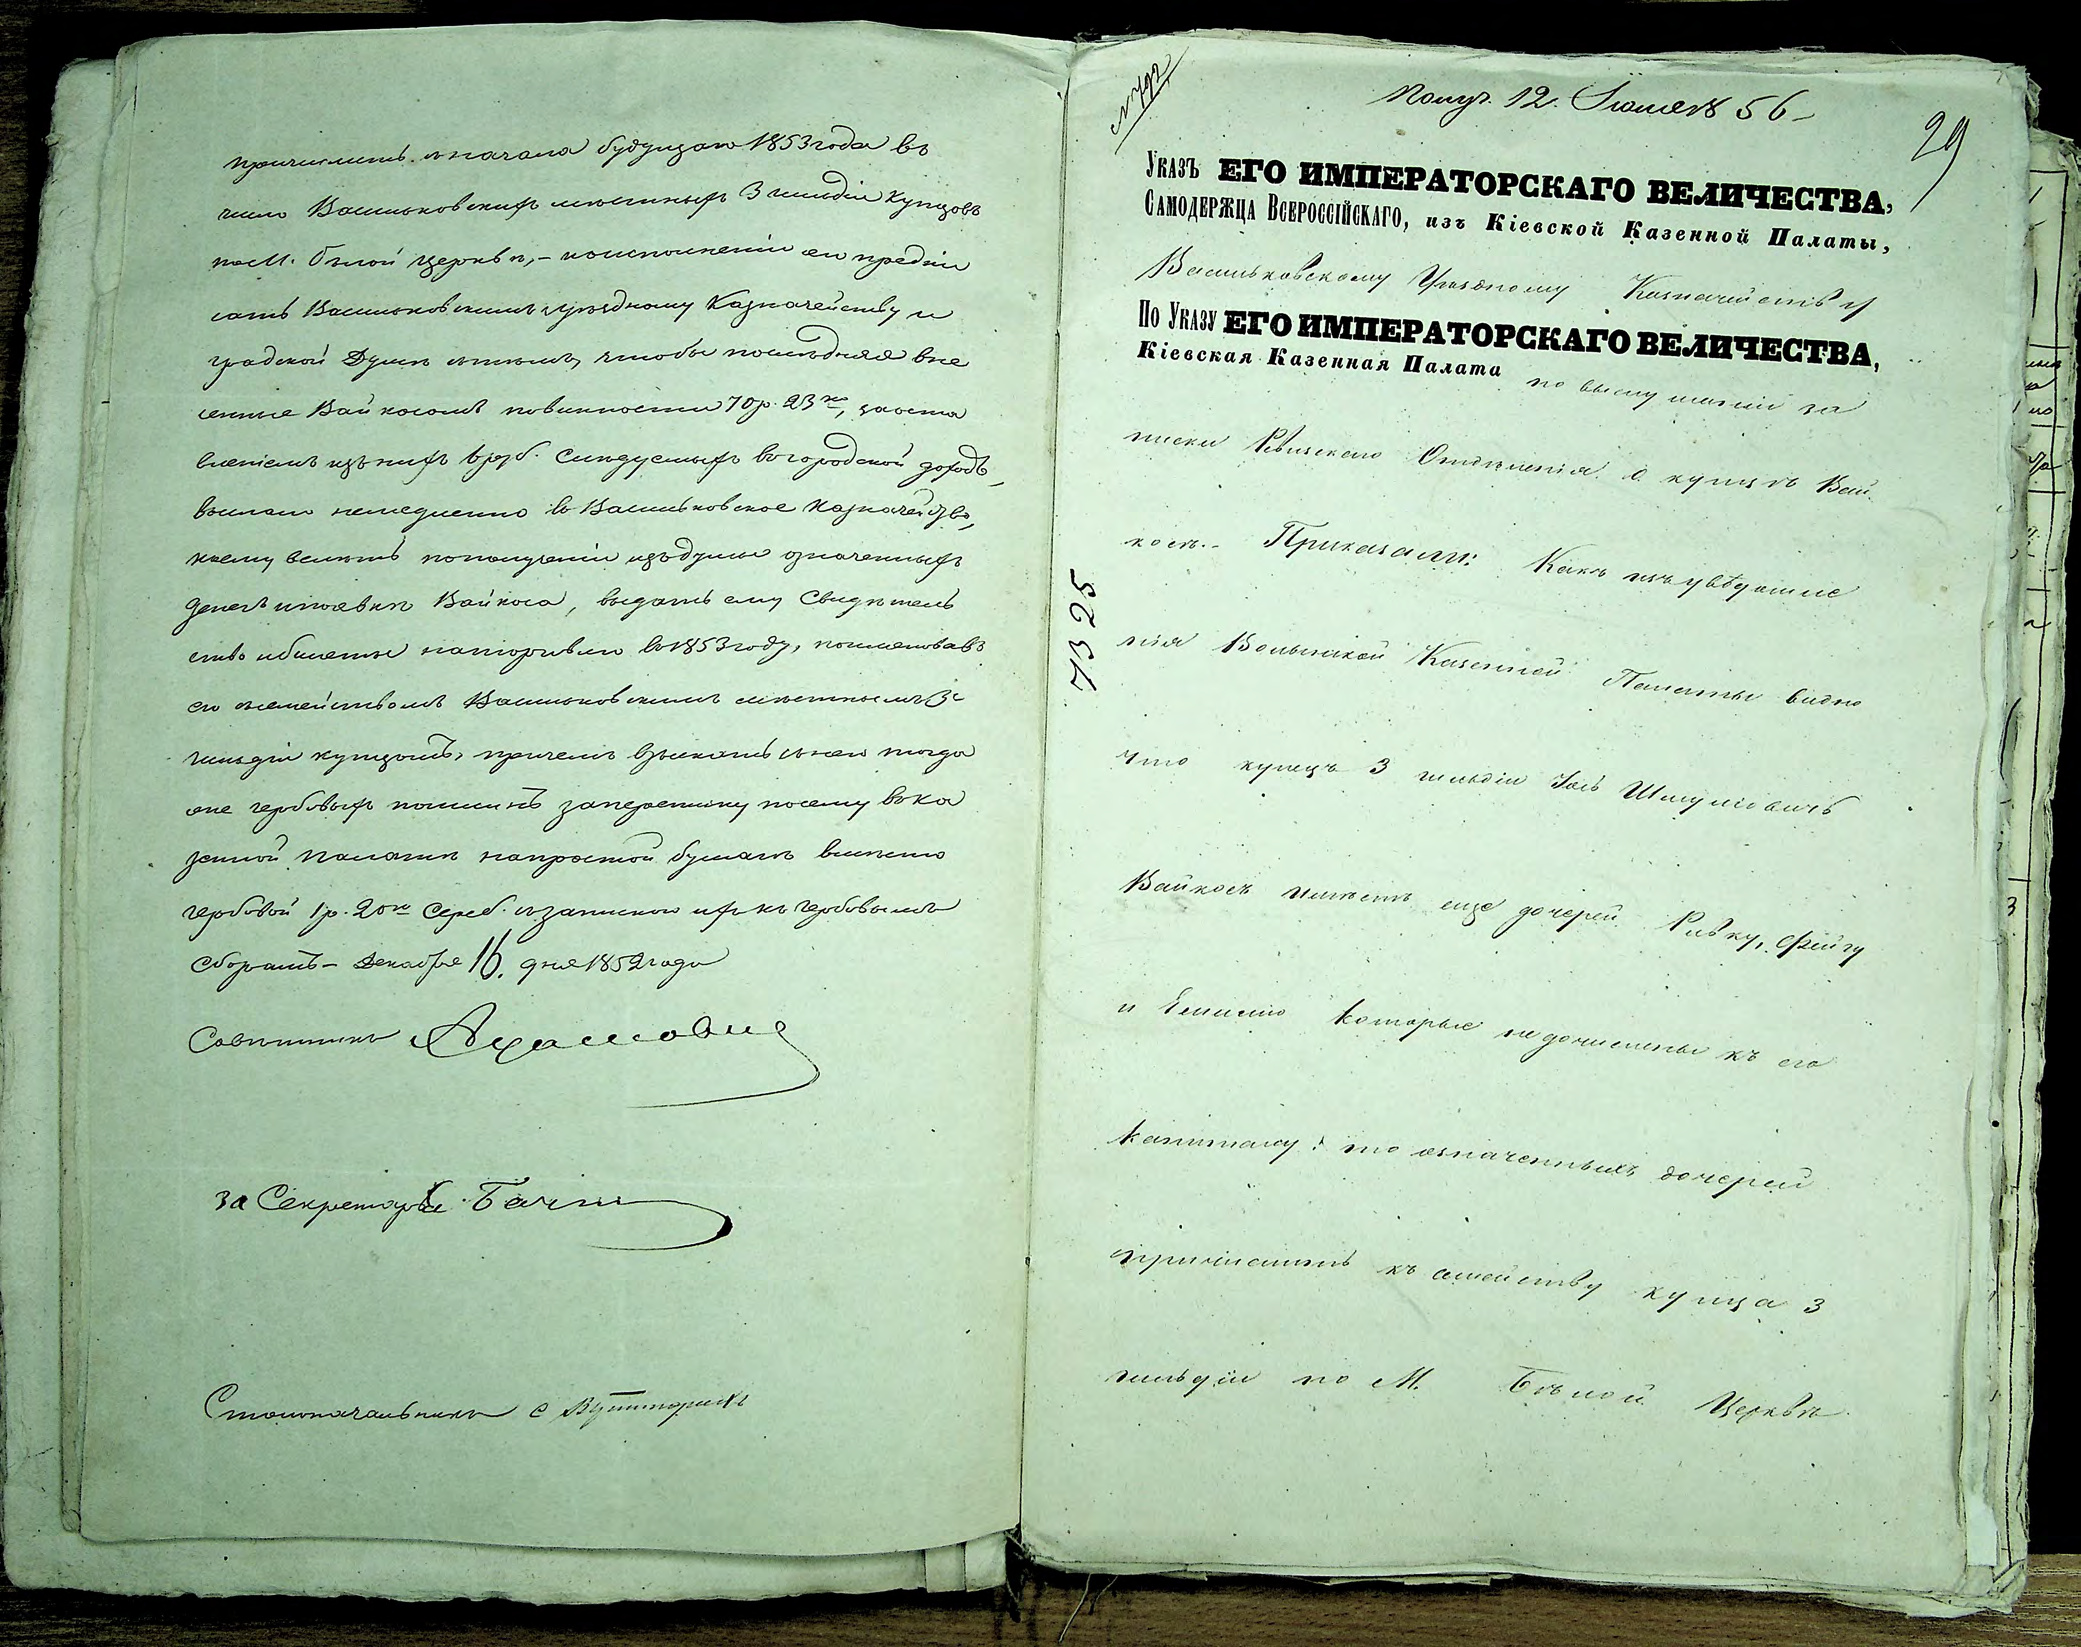 причислить съ начала будущаго 1853 года въ
число Васильковскихъ мѣстныхъ 3 гильдіи купцовъ
по М. Бѣлой Церкви, – коисполненіи сего предпи
сать Васильковскимъ уѣздному Казначейству и
градской Думѣ съ тѣмъ, чтобы послѣдняя вне
сенные Вайкосомъ повинности 70 р. 23 ко, за оста
вленіемъ изъ нихъ 6 руб. Слѣдуемыхъ въ городской доходъ,
выслала немедленно въ Васильковское Казначейство,
коему велѣть по полученіи изъ думы означенныхъ
денегъ и по явкѣ Вайкоса, выдать ему Свидѣтель
ство и билеты на торговлю въ 1853 году, поименовавъ
его съ семействомъ Васильковскимъ мѣстнымъ 3й
гильдіи купцомъ, причемъ взыскать съ него тогда
же гербовыхъ пошлинъ за переписку по сему въ Ка
зенной Палатѣ на простой бумагѣ вмѣсто
гербовой 1 р. 20 ко Сереб. съ запискою ихъ къ гербовымъ
сборамъ – Декабря 16. дня 1852 года
Совѣтникъ
За Секретаря
Столоначальникъ
№ 792
Получ. 12. Іюля 56 –
29
Указъ ЕГО ИМПЕРАТОРСКАГО ВЕЛИЧЕСТВА,
Самодержца Всероссійскаго, изъ Кіевской Казенной Палаты,
Васильковскому Уѣздному Казначейству
По Указу ЕГО ИМПЕРАТОРСКАГО ВЕЛИЧЕСТВА,
Кіевская Казенная Палата по выслушаніи за
писки Ревизскаго Отдѣленія о купцѣ Вай
косѣ. – Приказали: Какъ изъ увѣдомле
7325
нія Волынской Казенной Палаты видно
что купецъ 3 гильдіи Іось Шмуліовичъ
Вайкосъ имѣетъ еще дочерей Ривку, Фейгу
и которые не дочислены къ его
капиталу: то означенныхъ дочерей
причислить къ семейству купца 3
гильдіи по М. Бѣлой Церквѣ